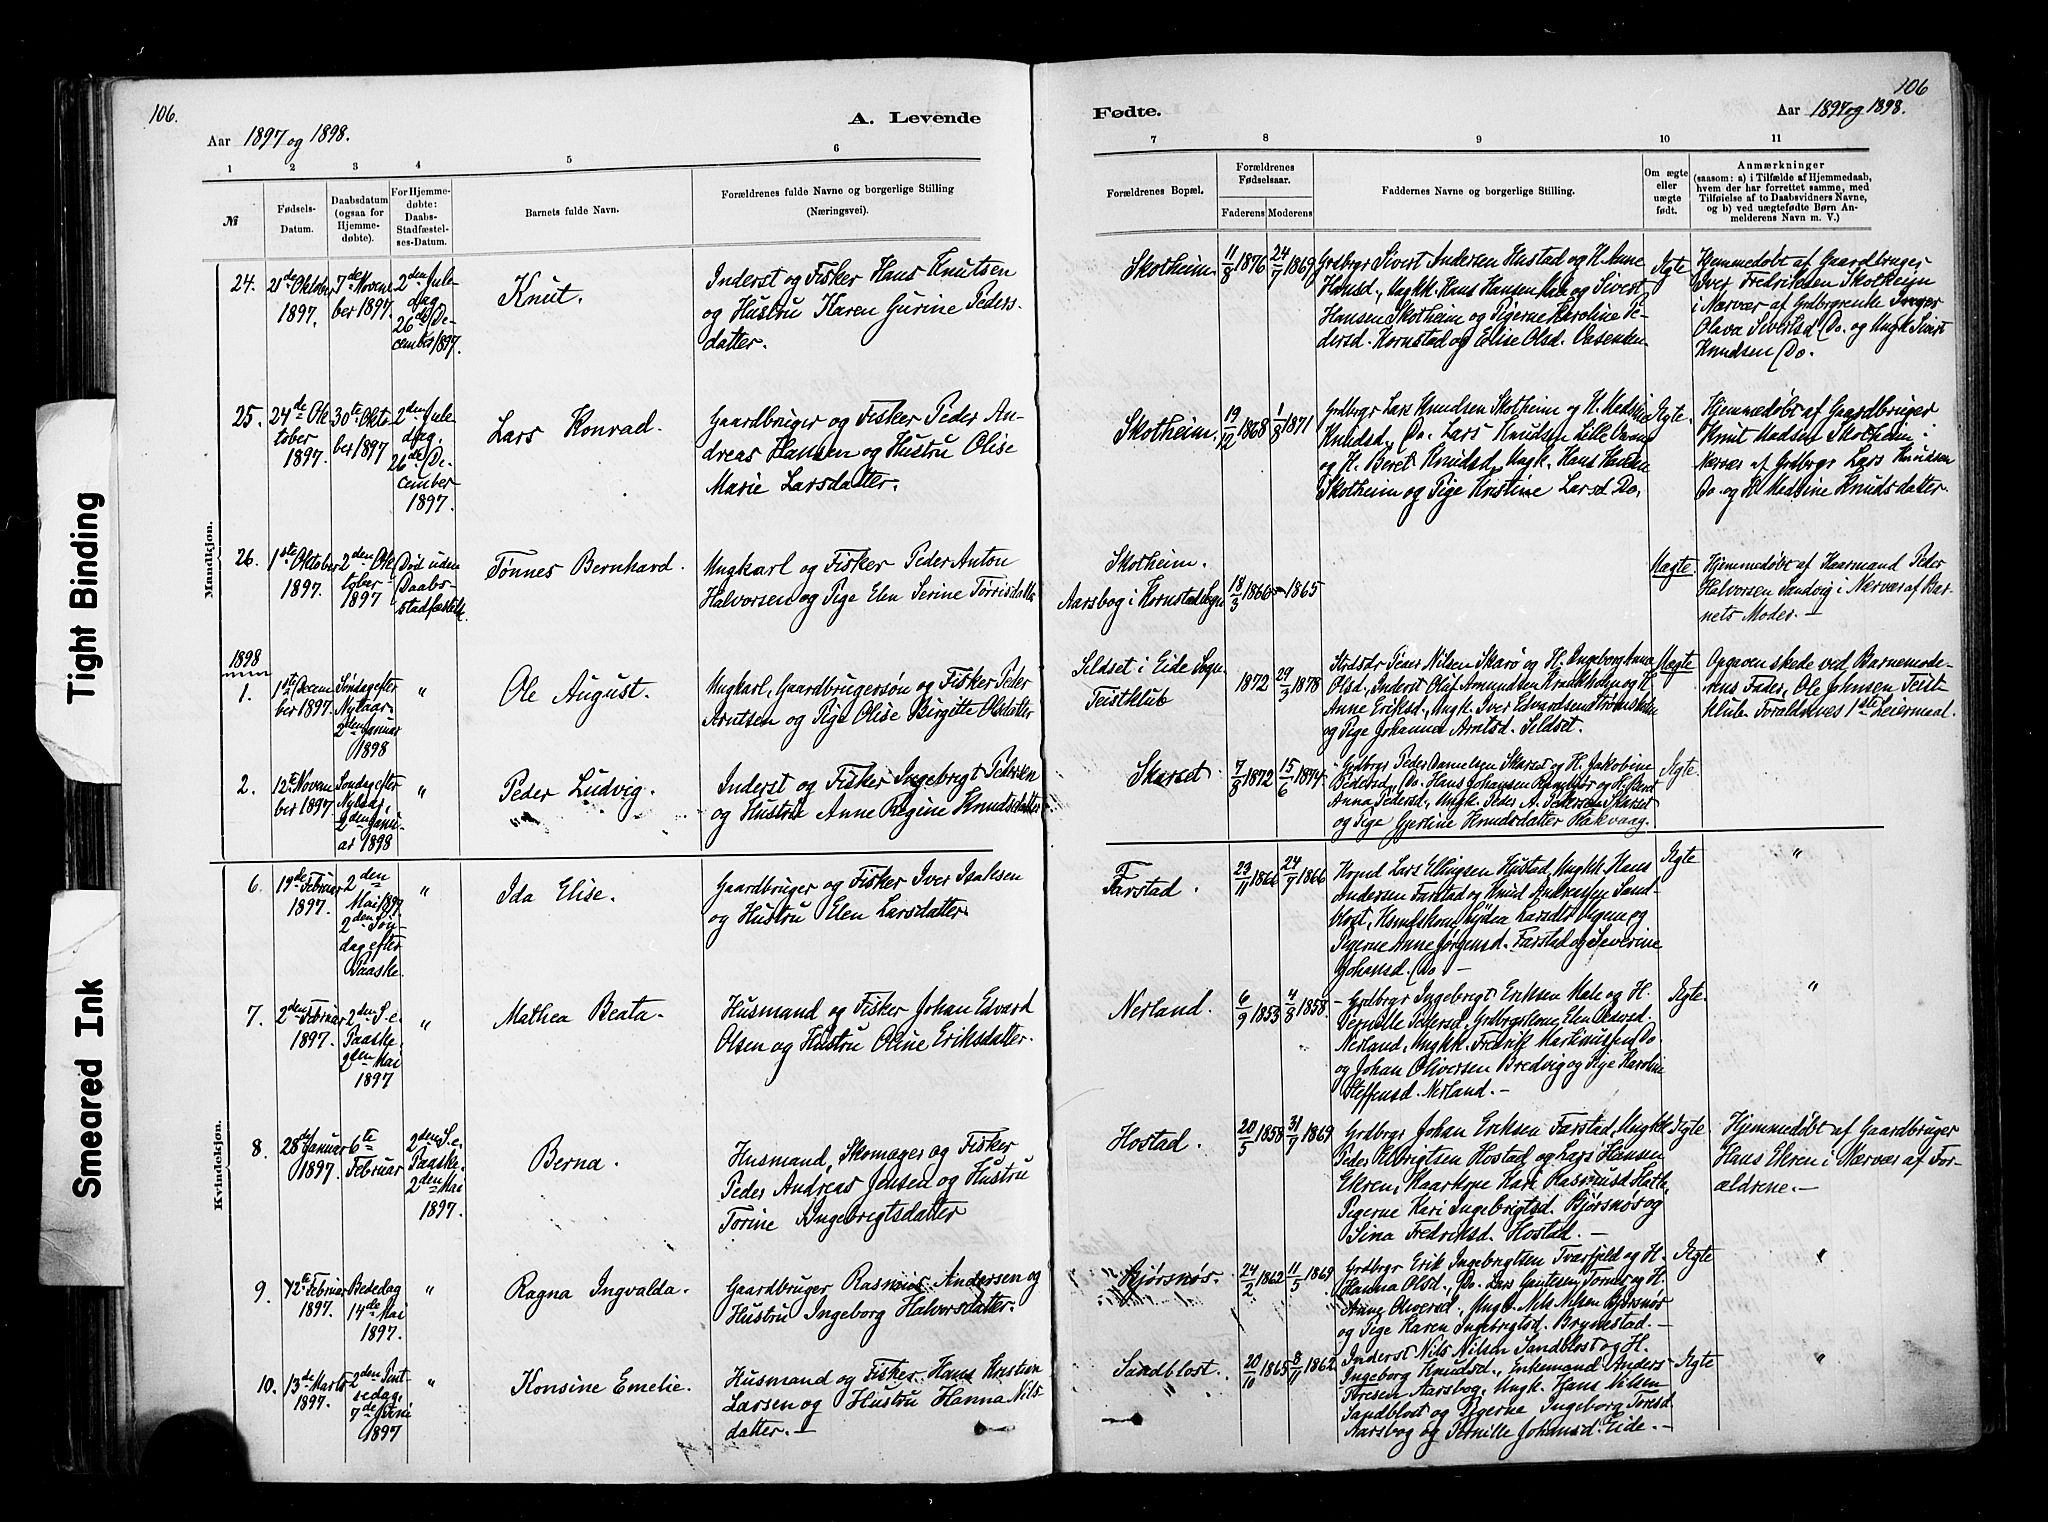 106.
106
Aar 1897 og 1898.
A. Levende
Fødte.
Aar 1897 og 1898.
1 2 3 4 5 6
7 8 9 10 11
№
Fødsels-
Datum.
Daabsdatum
(ogsaa for
Hjemme-
døbte).
For Hjemme-
døbte:
Daabs-
Stadfæstel-
ses-Datum.
Barnets fulde Navn.
Forældrenes fulde Navne og borgerlige Stilling
(Næringsvei).
Forældrenes Bopæl.
Forældrenes
Fødselsaar.
Faderens Moderens
Faddernes Navne og borgerlige Stilling.
Om ægte
eller
uægte
født.
Anmærkninger
(saasom: a) i Tilfælde af Hjemmedaab,
hvem der har forrettet samme, med
Tilføielse af to Daabsvidners Navne,
og b) ved uægtefødte Børn An-
melderens Navn m. V.)
Mandkjøn.
24.
21de Oktober
1897.
7de Novem
ber 1897.
2den Jule
dag,
26de De-
cember 1897.
Knut.
Inderst og Fisker Hans Knutsen
og Hustru Karen Gurine Peders-
datter.
Skotheim.
11/8 1876
24/7 1869
Grdbrgr Sivert Andersen Hustad og H. Anne
Hansd., Ungkk. Hans Hansen og Sivert
Hansen Skotheim og Pigerne Karoline Pe-
dersd. Kornstad og Elise Olsd.
Ægte
Hjemmedøbt af Gaardbruger
Iver Fredriksen Skotheim
i Nærvær af
Olava Sivertsd. Do. og Ungk. Sivert
Knudsen Do.
25.
24de Ok
tober
1897.
30te Okto
ber 1897
2den Jule
dag.
26de De-
cember
1897.
Lars Konrad.
Gaardbruger og Fisker Peder An-
dreas Hansen og Hustru Olise
Marie Larsdatter.
Skotheim.
19/12 1868
1/8 1871
Grdbrgr Lars Knudsen Skotheim og H.
Knudsd., Do. Lars Knudsen Lille
og H. Beret Knudsd., Ungk. Hans Hansen
Skotheim og Pige Kristine Larsd Do.
Ægte.
Hjemmedøbt af Gaardbruger
Knut Madsen Skotheim i
Nærvær af Grdbrgr Lars Knudsen
Do. og H. Knudsdatter.
26.
1ste Oktober
1897.
2den Ok
tober
1897
Død uden
Daabs-
stadfæstels.
Tønnes Bernhard.
Ungkarl og Fisker Peder Anton
Halvorsen og Pige Elen Serine Tørrisdatter
Skotheim.
Aarsbog i Kornstad Sogn
18/3 1866
1865
Uægte
Hjemmedøbt af Haarmand Peder
Halvorsen Sandvig i Nærvær af Bar-
nets Moder. —
1898
1.
1ste Decem
ber 1897.
Søndag efter
Nytaar
2den Januar
1898
"
Ole August.
Ungkarl, Gaardbrugersøn og Fisker Peder
Arntsen og Pige Olise Birgitte Olsdatter
Seldset i Eide Sogn
Teistklub
1872
29/3 1878
Peder Nilsen Skarø og H. Ingeborg Anna
Olsd., Inderst Oluf Amundsen og H
Anne Eriksd., Ungk. Iver Edvardsen
og Pige Johanna Arntsd. Seldset.
Uægte
Opgaven skede ved Barnemode-
rens Fader, Ole Johnsen Teist-
klub. Forældrenes 1ste Leiermaal.
2.
12te Novem
ber 1897
Søndag efter
2den Janu-
ar 1898
"
Peder Ludvig.
Inderst og Fisker Ingebrigt Pedersen
og Hustru Anne Regine Knudsdatter
Skarset.
7/8 1872
15/6 1874
Grdbrgr Peder Danielsen Skarset og H. Jakobine
Pedersd., Do. Hans Johansen og H.
Anna Pedersd., Ungk. Peder A. Pedersen Skarset
og Pige Gjertine Knudsdatter Rakvaag.
Ægte.
Kvindekjøn.
6.
19de Februar
1897.
2den
Mai 1897
2den Søn-
dag efter
Paaske.
"
Ida Elise.
Gaardbruger og Fisker Iver Isaksen
og Hustru Elen Larsdatter.
Farstad.
23/11 1866
24/7 1866
Lars Ellingsen Hustad, Ungkk. Hans
Andersen Farstad og Knud Andreassen Sand-
blost, Lydia Larsdt og
Pigerne Anne Jørgensd. Farstad og Severine
Johansd. Do. —
Ægte
"
7.
2den Februar
1897.
2den S. e.
Paaske.
2den Mai
1897
"
Mathea Beata.
Husmand og Fisker Johan Edvard
Olsen og Hustru Oline Eriksdatter.
Nerland.
6/9 1853
4/8 1858
Grdbrgr Ingebrigt Eriksen Male og H.
Pernille Pedersd., Elen
Nerland, Ungkk. Fredrik Martinussen Do.
og Johan Oliversen Bredvig og Pige Karoline
Steffensd. Nerland. —
Ægte.
"
8.
28de Januar
1897.
6te
Februar
2den S. e.
Paaske.
2den Mai
1897.
Berna.
Husmand, Skomager og Fisker
Peder Andreas Jensen og Hustru
Torine Ingebrigtsdatter
Hostad.
20/5 1858
31/7 1869
Grdbrgr Johan Eriksen Farstad, Ungkk
Peder Hostad og Lars Hansen
Ekren, Kaarkone Kari Rasmusd.
Pigerne Kari Ingebrigtsd. Bjørsnøs og
Sina Fredriksd. Hostad. —
Ægte.
Hjemmedøbt af Gaardbruger
Hans Ekren i Nærvær af For-
ældrene. —
9.
12te Februar
1897.
Bededag
14de Mai
1897.
"
Ragna Ingvalda.
Gaardbruger Rasmus Andersen og
Hustru Ingeborg Halvorsdatter.
Bjørsnøs.
24/2 1862
11/5 1869
Grdbrgr Erik Ingebrigtsen Tvarfjeld og H.
Hanna Olsd., Do. Lars Gautesen Tornes og H.
Anne Oliversd., Ungk. Nils Nilsen Bjørsnøs
og Pige Karen Ingebrigtsd. Brynestad. —
Ægte
"
10.
13de Marts
1897.
2den Pint
sedag.
7de Juni
1897
"
Konsine Emelie.
Husmand og Fisker Hans Kristian
Larsen og Hustru Hanna Nils-
datter. —
Sandblost.
20/10 1865
8/11 1862
Inderst Nils Nilsen Sandblost og H.
Ingeborg Knudsd., Enkemand Anders
Toresen Aarsbog, Ungk. Hans Nilsen
Sandblost og Pigerne Ingeborg Toresd
Aarsbog og Pernille Johansd. Eide. —
Ægte
"
Tight Binding
Smeared Ink